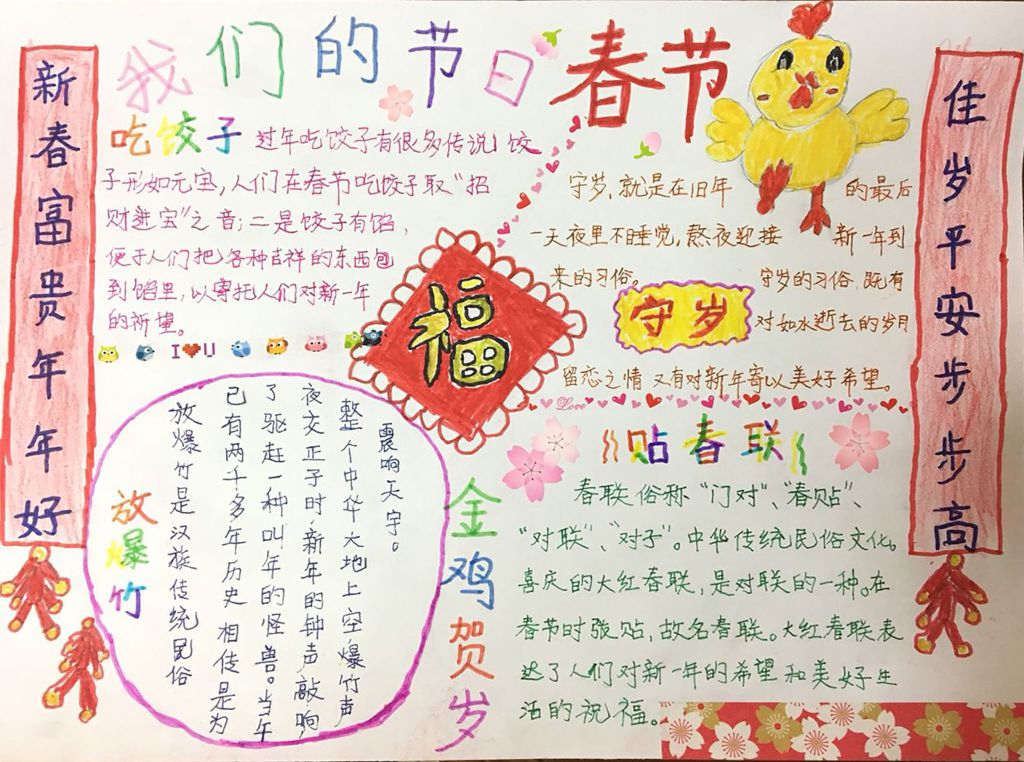 我们的节日 春节
新春富贵年年好
佳岁平安步步高
吃饺子 过年吃饺子有很多传说,饺
子形如元宝,人们在春节吃饺子取“招
财进宝”之音;二是饺子有馅,
便于人们把各种吉祥的东西包
到馅里,以寄托人们对新一年
的祈望。
I U
守岁,就是在旧年 的最后
一天夜里不睡觉,熬夜迎接 新一年到
来的习俗。 守岁的习俗,既有
守岁
对如水逝去的岁月
留恋之情又有对新年寄以美好希望。
Love
福
放爆竹
放爆竹是汉族传统民俗
已有两千多年历史 相传是为
了驱赶一种叫年的怪兽。当午
夜交正子时,新年的钟声敲响,
整个中华大地上空,爆竹声
震响天宇。
金鸡贺岁
贴春联
春联俗称“门对”、“春贴”、
“对联”、“对子”。中华传统民俗文化。
喜庆的大红春联,是对联的一种。在
春节时张贴,故名春联。大红春联表
达了人们对新一年的希望和美好生
活的祝福。